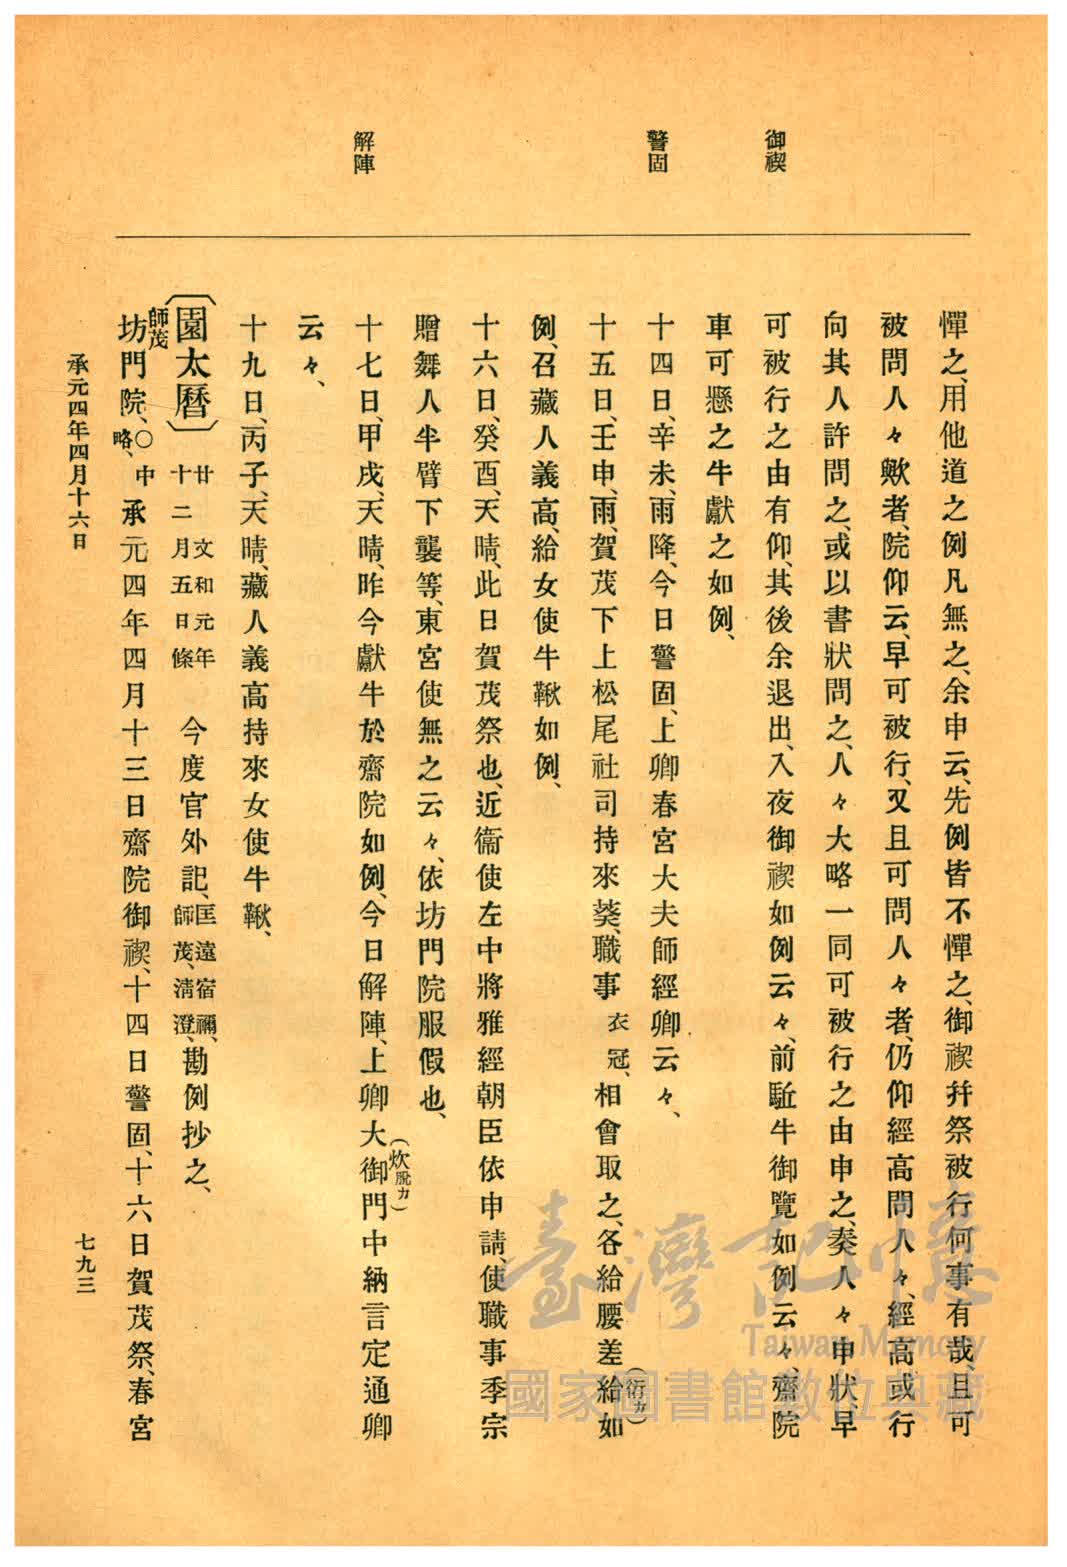 御禊
警固
解陣
憚之、用他道之例凡無之、余申云、先例皆不憚之、御禊幷祭被行何事有哉、且可
被問人々歟者、院仰云、早可被行、又且可問人々者、仍仰經高問人々、經高或行
向其人許問之、或以書狀問之、人々大略一同可被行之由申之、奏人々申狀、早
可被行之由有仰、其後余退出、入夜御禊如例云々、前駈牛御覽如例云々、齋院
車可懸之牛獻之如例、
十四日、辛未、雨降、今日警固、上卿春宮大夫師經卿云々、
十五日、壬申、雨、賀茂下上松尾社司持來葵、職事衣冠、相會取之、各給腰差給(衍カ)如
例、召藏人義高、給女使牛鞦如例、
十六日、癸酉、天晴、此日賀茂祭也、近衞使左中將雅經朝臣依申請、使職事季宗
贈舞人半臂下襲等、東宮使無之云々、依坊門院服假也、
十七日、甲戌、天晴、昨今獻牛於齋院如例、今日解陣、上卿大(炊脫カ)御門中納言定通卿
云々、
十九日、丙子、天晴、藏人義高持來女使牛鞦、
〔園太曆〕 文和元年廿十二月五日條 今度官外記、匡遠宿禰、師茂、淸澄、勘例抄之、
師茂
坊門院、○中略、承元四年四月十三日齋院御禊、十四日警固、十六日賀茂祭、春宮
承元四年四月十六日
七九三
臺灣記憶
Taiwan Memory
國家圖書館數位典藏